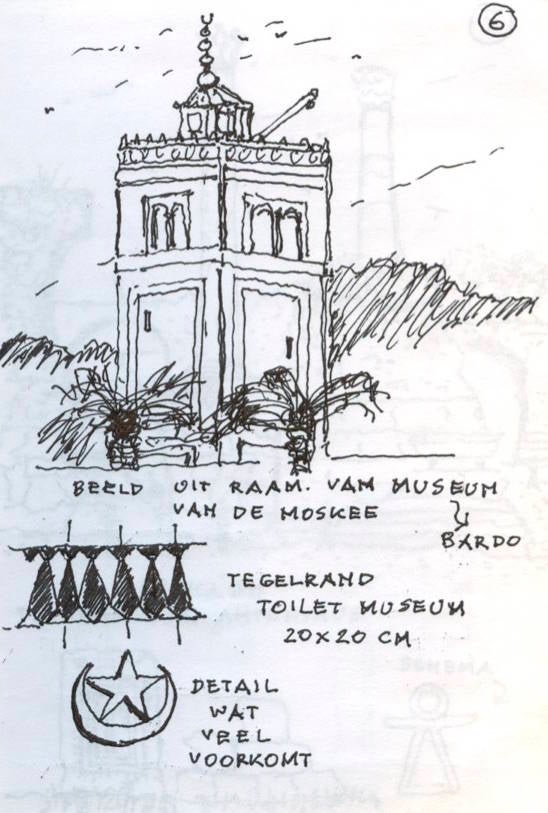 6
BEELD UIT RAAM. VAN MUSEUM
VAN DE MOSKEE
BARDO
TEGELRAND
TOILET MUSEUM
20x20 CM
DETAIL
WAT
VEEL
VOORKOMT
SCHEMA